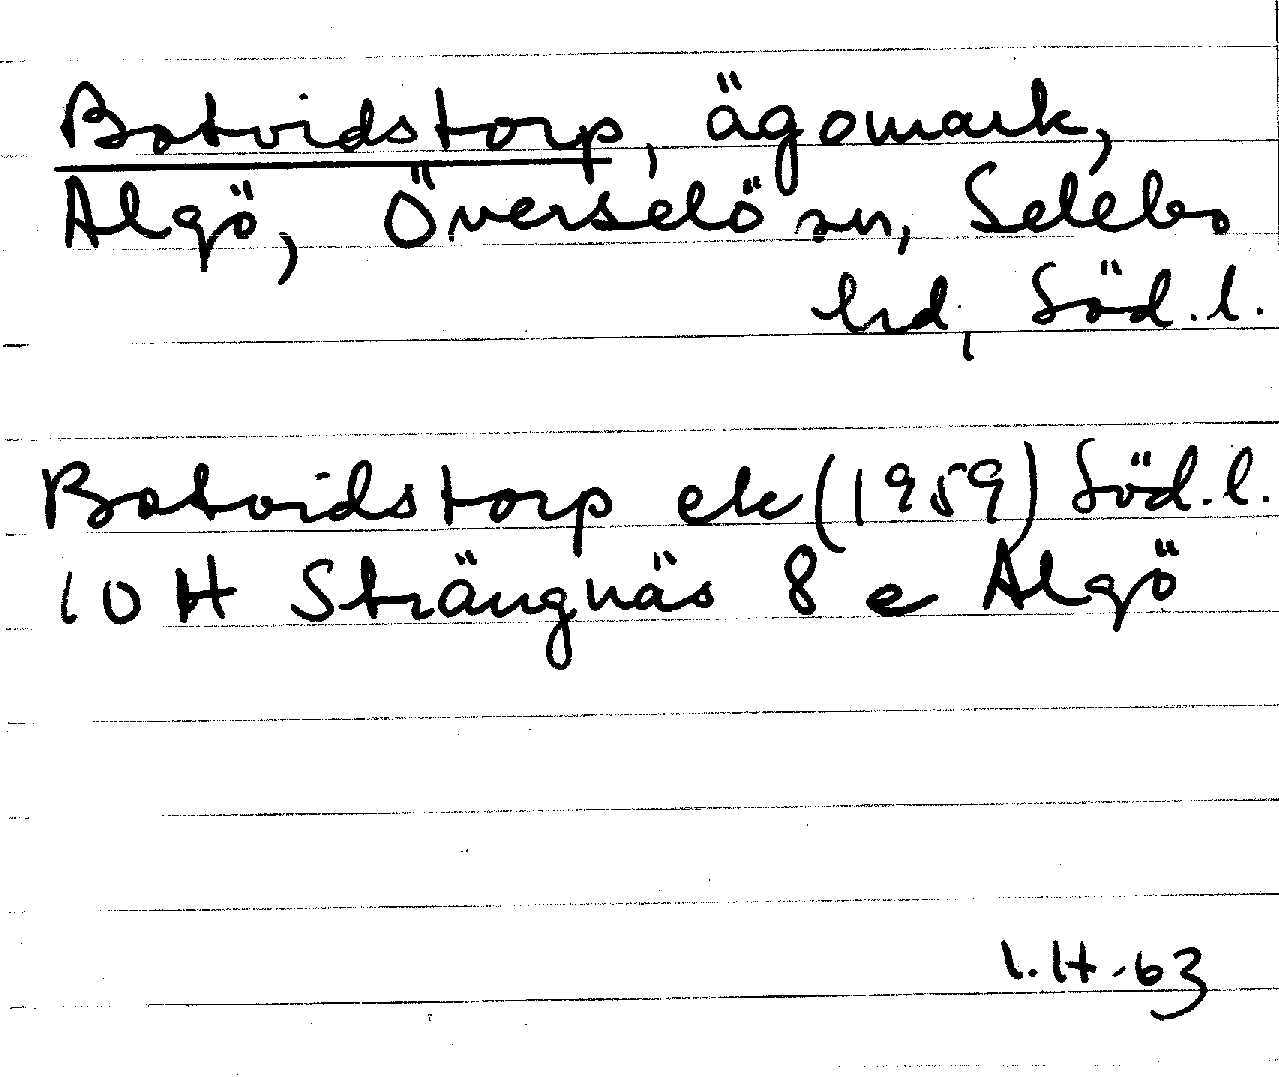 Botvidstorp, ägomark,
Algö, Överselö sn, Selebo
hd, Söd.l.
Botvidstorp ek (1959) Söd.l.
10 H Strängnäs 8 e Algö
I.H.63